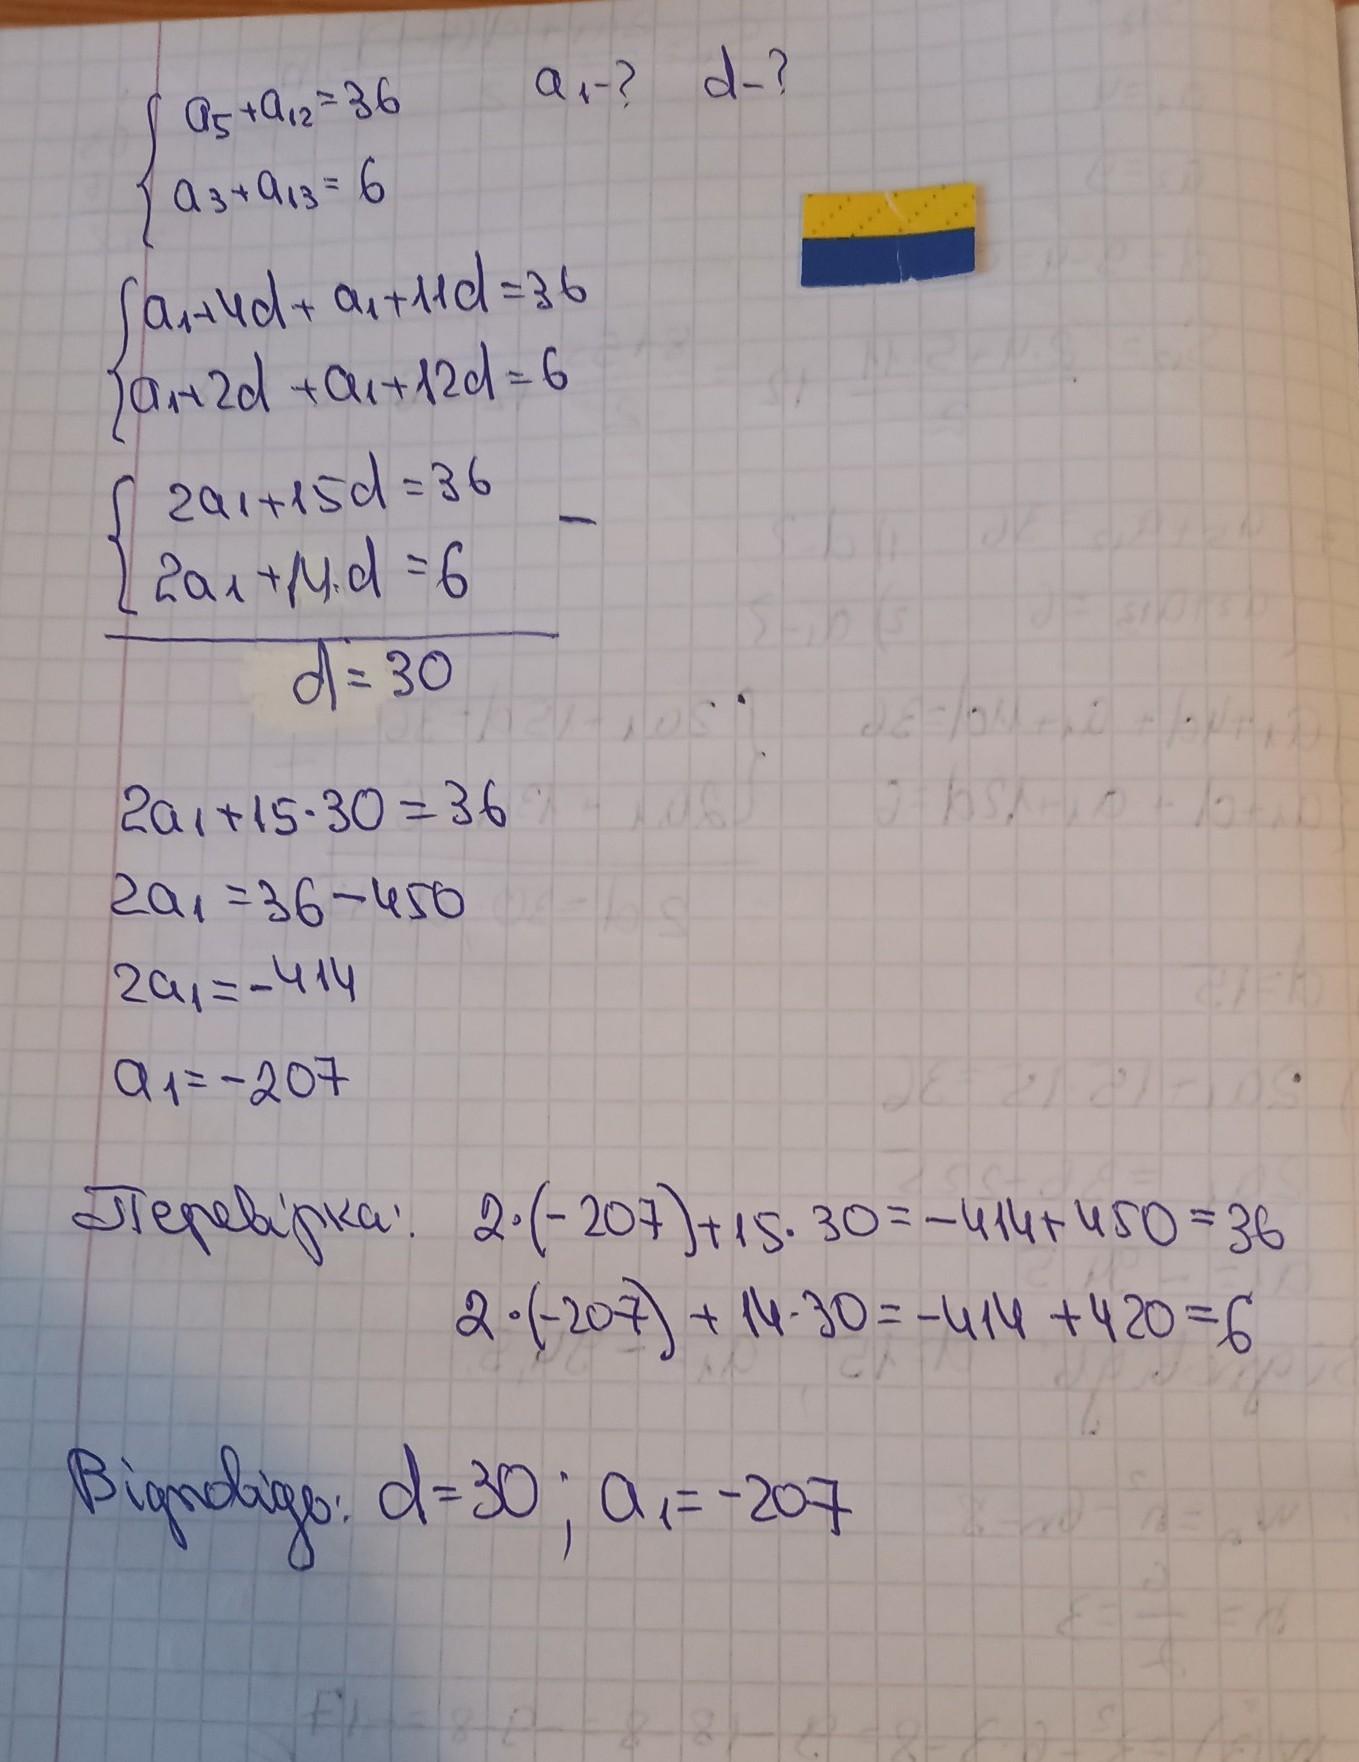 a₅+a₁₂=36 a₁-? d-?
a₃+a₁₃=6
a₁+4d+a₁+11d=36
a₁+2d+a₁+12d=6
2a₁+15d=36 −
2a₁+14d=6
d=30
2a₁+15·30=36
2a₁=36-450
2a₁=-414
a₁=-207
Перевірка: 2·(-207)+15·30=-414+450=36
2·(-207)+14·30=-414+420=6
Відповідь: d=30; a₁=-207